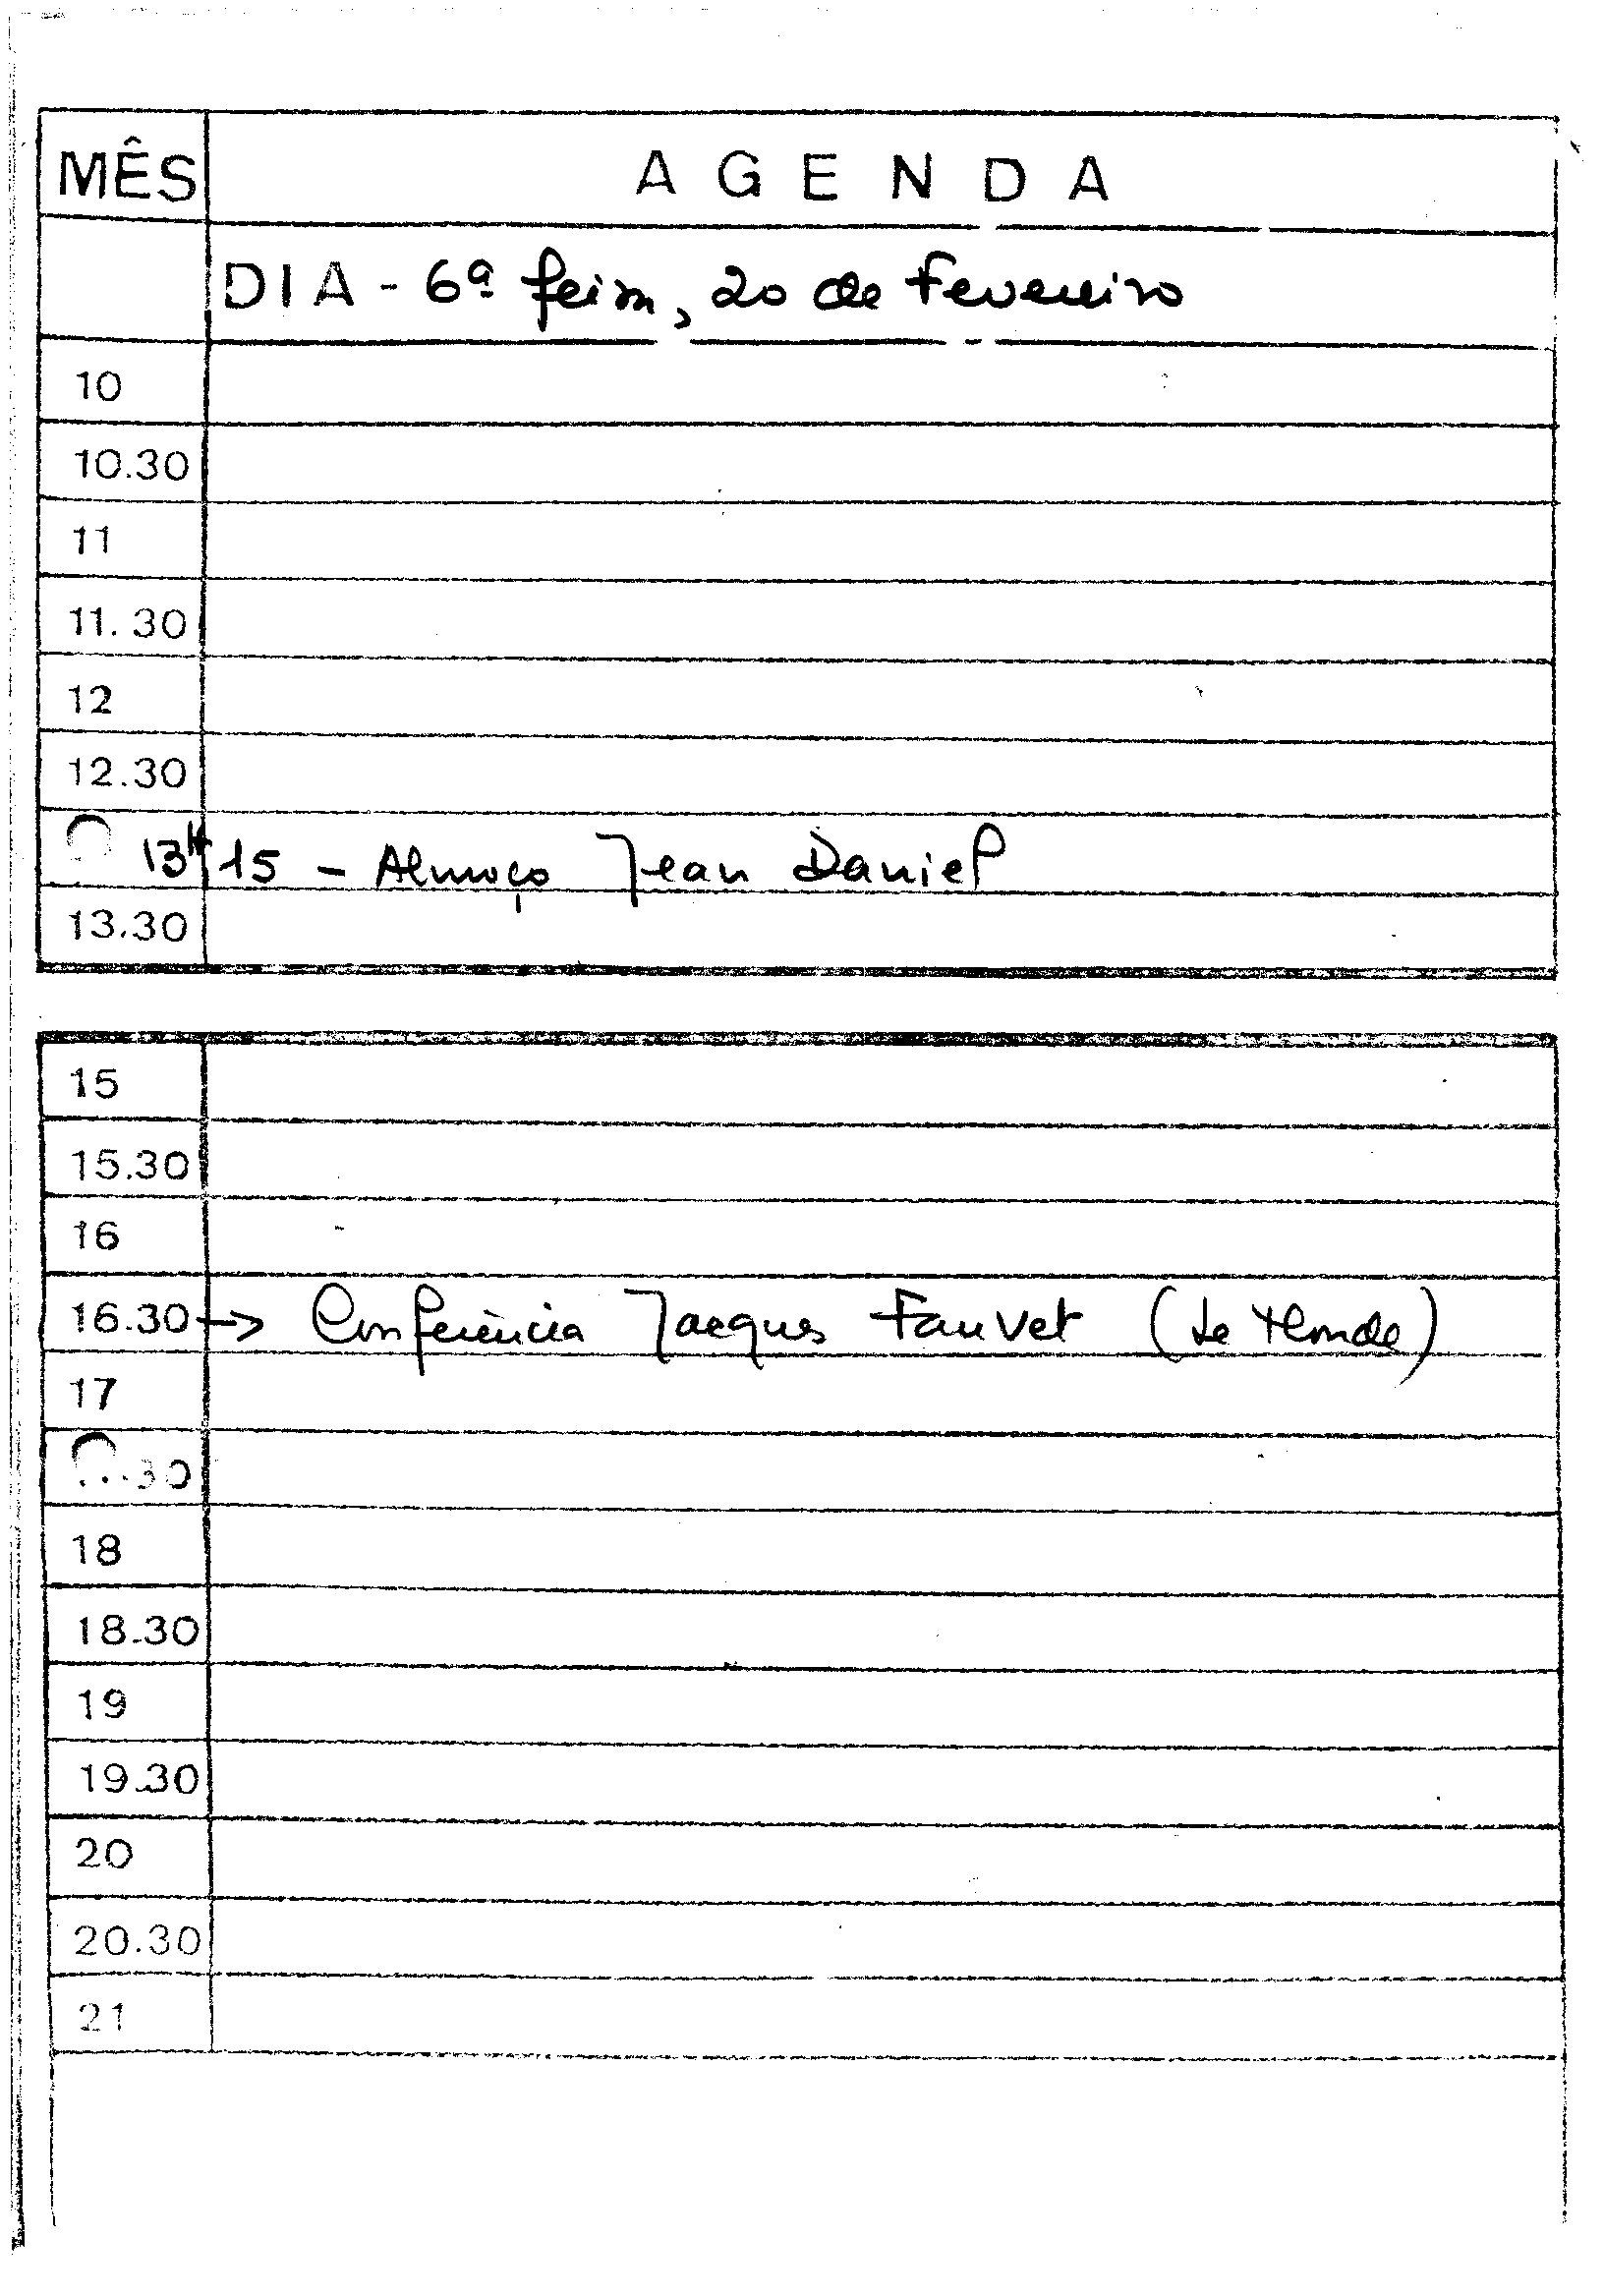 MÊS AGENDA
DIA - 6ª feira, 20 de Fevereiro
10
10.30
11
11.30
12
12.30
13H15 - Almoço Jean Daniel
13.30
15
15.30
16
16.30 → Conferência Jacques Fauvet (Le Monde)
17
.30
18
18.30
19
19.30
20
20.30
21